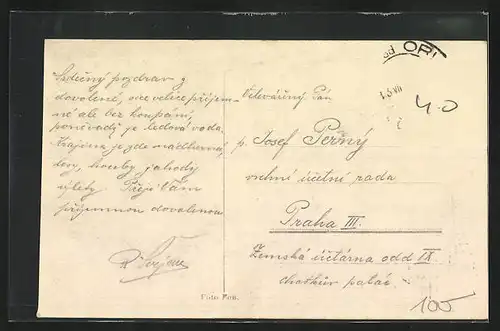 Srdečný pozdrav z
dovolené, sice velice příjem-
né ale bez koupání,
poněvadž je ledová voda,
krajina je zde nádherná,
lesy, houby jahody
výlety. Přeji Vám
příjemnou dovolenou
Velevážený Pán
p. Josef Perný
vrchní účetní rada
Praha III.
Zemská účtárna odd IX
palác
ORL
4.0
105